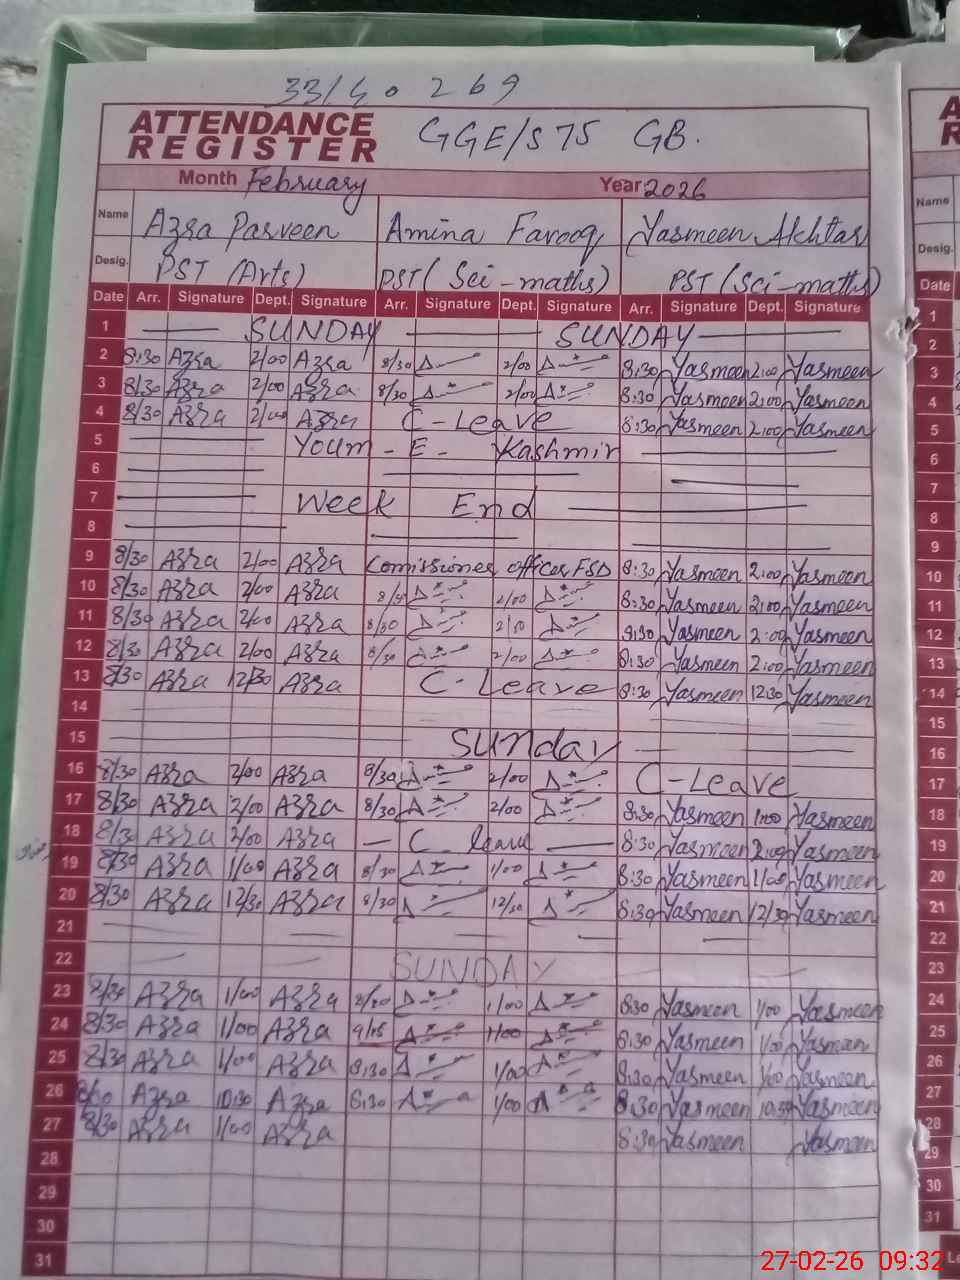 33/40 269
ATTENDANCE REGISTER GGE/S 75 GB.
Month February Year 2026
Name Azra Parveen Amina Farooq Yasmeen Akhtar
Desig. PST (Arts) PST (Sci-maths) PST (Sci-maths)
Date Arr. Signature Dept. Signature Arr. Signature Dept. Signature Arr. Signature Dept. Signature
1 SUNDAY SUNDAY
2 8:30 Azra 2/00 Azra 8/30 2/00 8:30 Yasmeen 2:00 Yasmeen
3 8/30 Azra 2/00 Azra 8/30 2/00 8:30 Yasmeen 2:00 Yasmeen
4 8/30 Azra 2/00 Azra C-Leave 8:30 Yasmeen 2:00 Yasmeen
5 Youm-E-Kashmir
6
7 Week End
8
9 8/30 Azra 2/00 Azra Comissioner office FSD 8:30 Yasmeen 2:00 Yasmeen
10 8/30 Azra 2/00 Azra 8/30 2/00 8:30 Yasmeen 2:00 Yasmeen
11 8/30 Azra 2/00 Azra 8/30 2/00 8:30 Yasmeen 2:00 Yasmeen
12 8/30 Azra 2/00 Azra 8/30 2/00 8:30 Yasmeen 2:00 Yasmeen
13 8/30 Azra 12/30 Azra C-Leave 8:30 Yasmeen 12:30 Yasmeen
14
15 Sunday
16 8/30 Azra 2/00 Azra 8/30 2/00 C-Leave
17 8/30 Azra 2/00 Azra 8/30 2/00 8:30 Yasmeen Yasmeen
18 8/30 Azra 2/00 Azra C leave 8:30 Yasmeen 2:00 Yasmeen
19 8/30 Azra 1/00 Azra 8/30 1/00 8:30 Yasmeen 1/00 Yasmeen
20 8/30 Azra 12/30 Azra 8/30 12/30 8:30 Yasmeen 12/30 Yasmeen
21
22 SUNDAY
23 8/30 Azra 1/00 Azra 8/30 1/00 8:30 Yasmeen 1/00 Yasmeen
24 8/30 Azra 1/00 Azra 9/15 1/00 8:30 Yasmeen 1/00 Yasmeen
25 8/30 Azra 1/00 Azra 8:30 1/00 8:30 Yasmeen 1/00 Yasmeen
26 Azra 10:30 Azra 8:30 1/00 8:30 Yasmeen Yasmeen
27 8/30 Azra 1/00 Azra 8:30 Yasmeen Yasmeen
28
29
30
31
Name
Desig.
Date
1
2
3
4
5
6
7
8
9
10
11
12
13
14
15
16
17
18
19
20
21
22
23
24
25
26
27
28
29
30
31
27-02-26 09:32